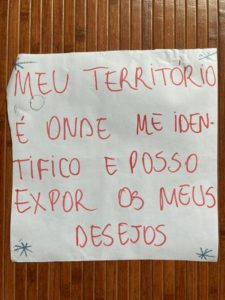 MEU TERRITÓRIO
É ONDE ME IDEN-
TIFICO E POSSO
EXPOR OS MEUS
DESEJOS